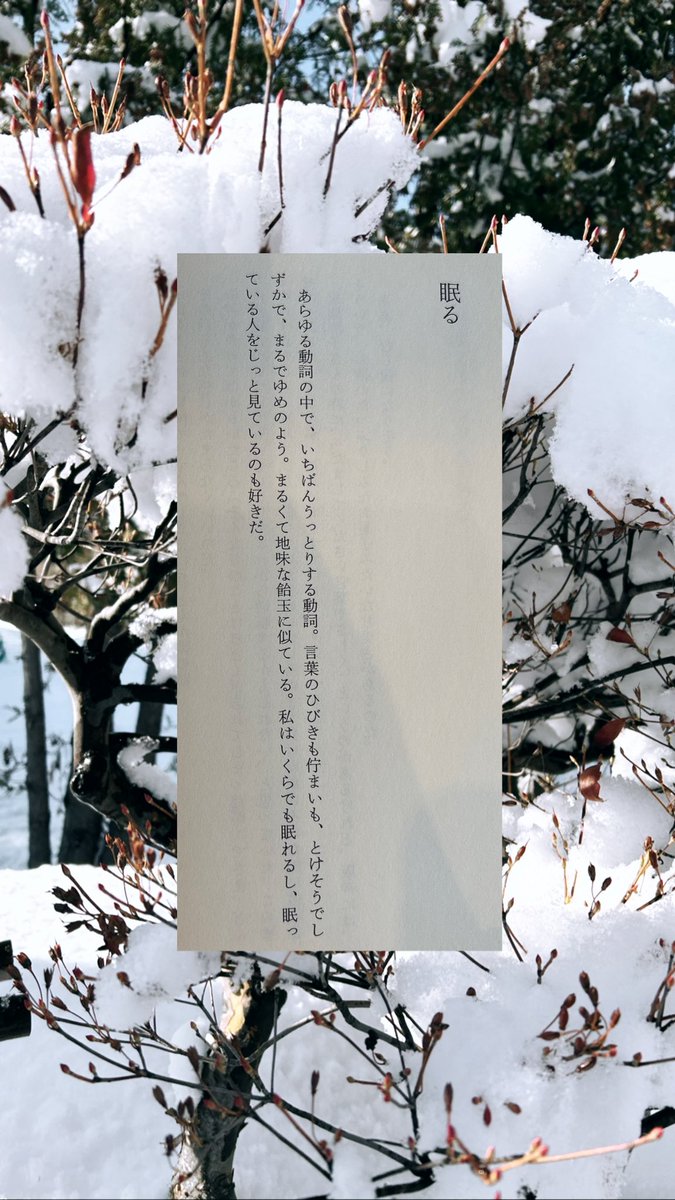 眠る
あらゆる動詞の中で、いちばんうっとりする動詞。言葉のひびきも佇まいも、とけそうでし
ずかで、まるでゆめのよう。まるくて地味な飴玉に似ている。私はいくらでも眠れるし、眠っ
ている人をじっと見ているのも好きだ。